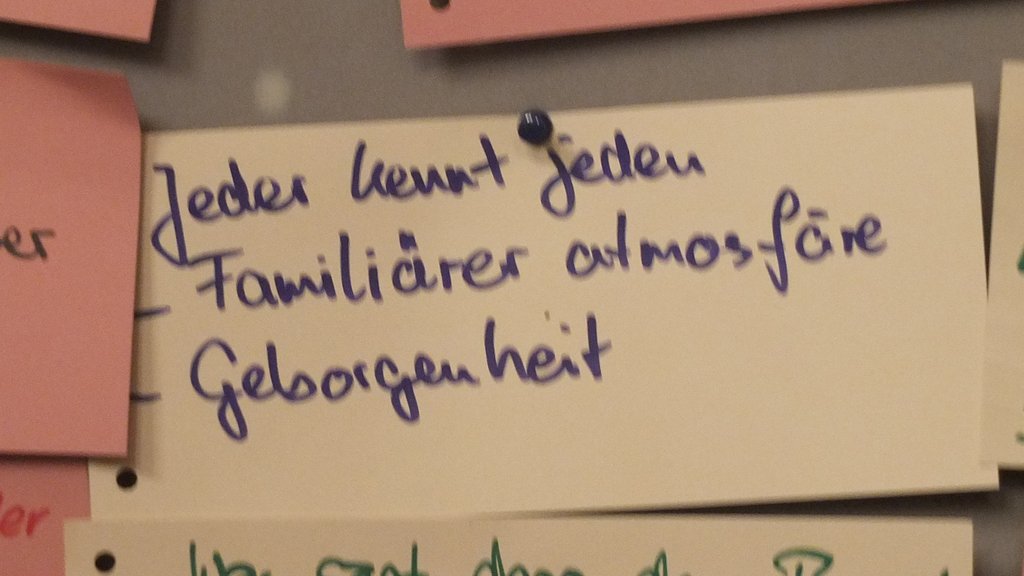 Jeder kennt jeden
- Familiärer atmosfäre
- Geborgenheit
er
der